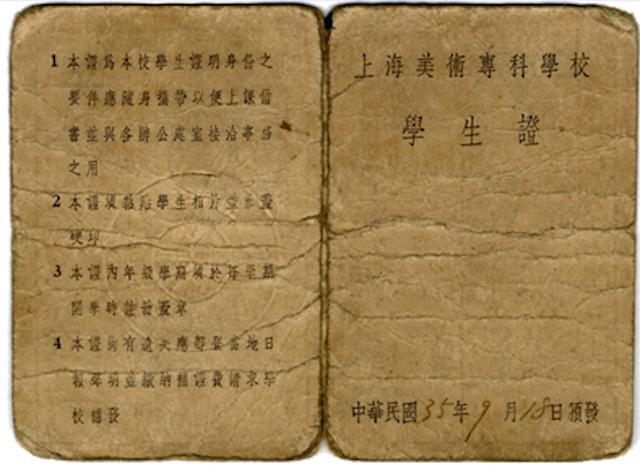 上海美術專科學校
學生證
中華民國35年9月18日頒發
1 本證為本校學生證明身份之
要件應隨身攜帶以便上課借
書並與各辦公處室接洽事務
之用
2 本證須黏貼學生相片並加蓋
硬印
3 本證內年級學期須於每學期
開學時註冊蓋章
4 本證倘有遺失應登當地日
報聲明並繳納補證費請求學
校補發